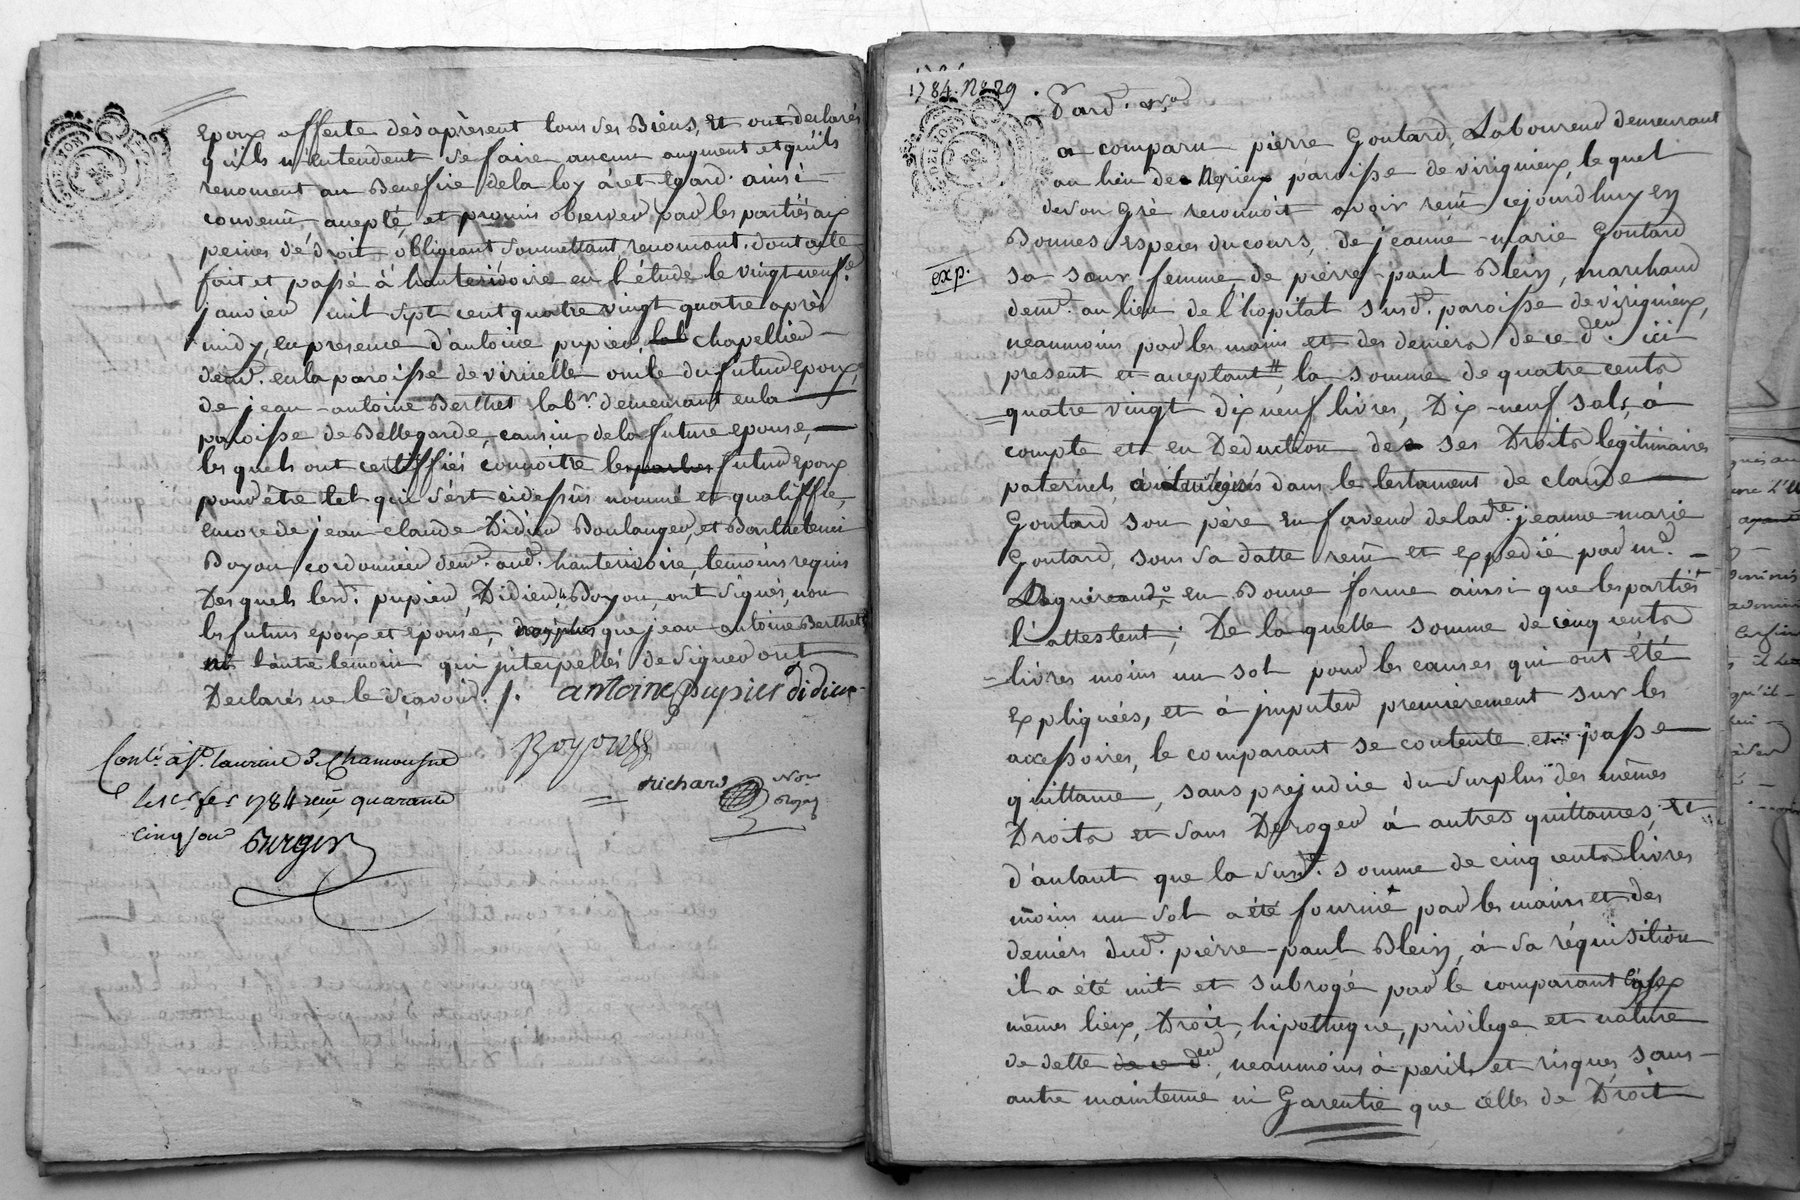 Epoux affecte dès aprèsent tous ses Biens, Et ont declarés
qu'ils n'entendent se faire aucun augment et qu'ils
renoncent au Benefice de la loy à cet Egard. ainsi
convenu, accepté, et promis observer par les parties aux
peines de droit obligeant soumettant renoncant. dont acte
fait et passé à hauterivoire en l'étude le vingt neuf
janvier mil sept cent quatre vingt quatre après
midy, en presence d'antoine pupier lab chapellier
demt. en la paroisse de viricelle oncle du futur epoux,
de jean-antoine Berthet labr. demeurant en la
paroisse de Bellegarde, cousin de la future epouse,
lesquels ont certiffiés connoitre les parties futur Epoux
pour être tel qu'il s'est cidessus nommé et qualiffié,
encore de jean claude Didier Boulanger, et Barthelemi
Boyou cordonnier demt. aud. hauterivoire, temoins requis
Des quels lesd. pupier, Didier, Boyou, ont signés, non
les futurs epoux et epouse, non plus que jean antoine Berthet
ni l'autre temoin qui interpellés de signer ont
Declarés ne le sçavoir. /. antoine pupier didier
Boyou
richard Nore Royal
Conlé. à st. laurent De Chamousset
le 1er fer 1784 reçu quarante
cinq sous
Burger
1784. No 29.
Pard. nre
a comparu pierre Goutard, Laboureur demeurant
au lieu de Nerieux paroisse de virignieux, lequel
de son Gré reconnoit avoir reçu cejourdhuy en
Bonnes Especes du cours, de jeanne-marie Goutard
exp.
sa sœur femme de pierre-paul Blein, marchand
demt. au lieu de l'hopital susd. paroisse de virignieux,
neanmoins par les mains et des deniers de ce der. ici
present et acceptant, la somme de quatre cents
quatre vingt dix neuf livres, Dix-neuf sols, à
compte et en Deduction de ses Droits legitimaires
paternels, dans le testament de claude
Goutard son père en faveur de lade. jeanne-marie
Goutard, sous sa datte reçu et expedié par me.
en Bonne forme ainsi que les parties
l'attestent; De laquelle somme de cinq cents
livres moins un sol pour les causes qui ont été
Expliquées, et à imputer premierement sur les
accessoires, le comparant se contente et passe
quittance, sans prejudice du surplus des mêmes
Droits et sans Deroger à autres quittances, et
d'autant que la susd. somme de cinq cents livres
moins un sol a été fournie par les mains et des
deniers dud. pierre-paul Blein, à sa réquisition
il a été mit et subrogé par le comparant à ses
mêmes lieux, Droit, hipotheque, privilege et nature
de dette de ce der, neanmoins à perils et risques, sans
autre maintenue ni Garentie que celles de Droit